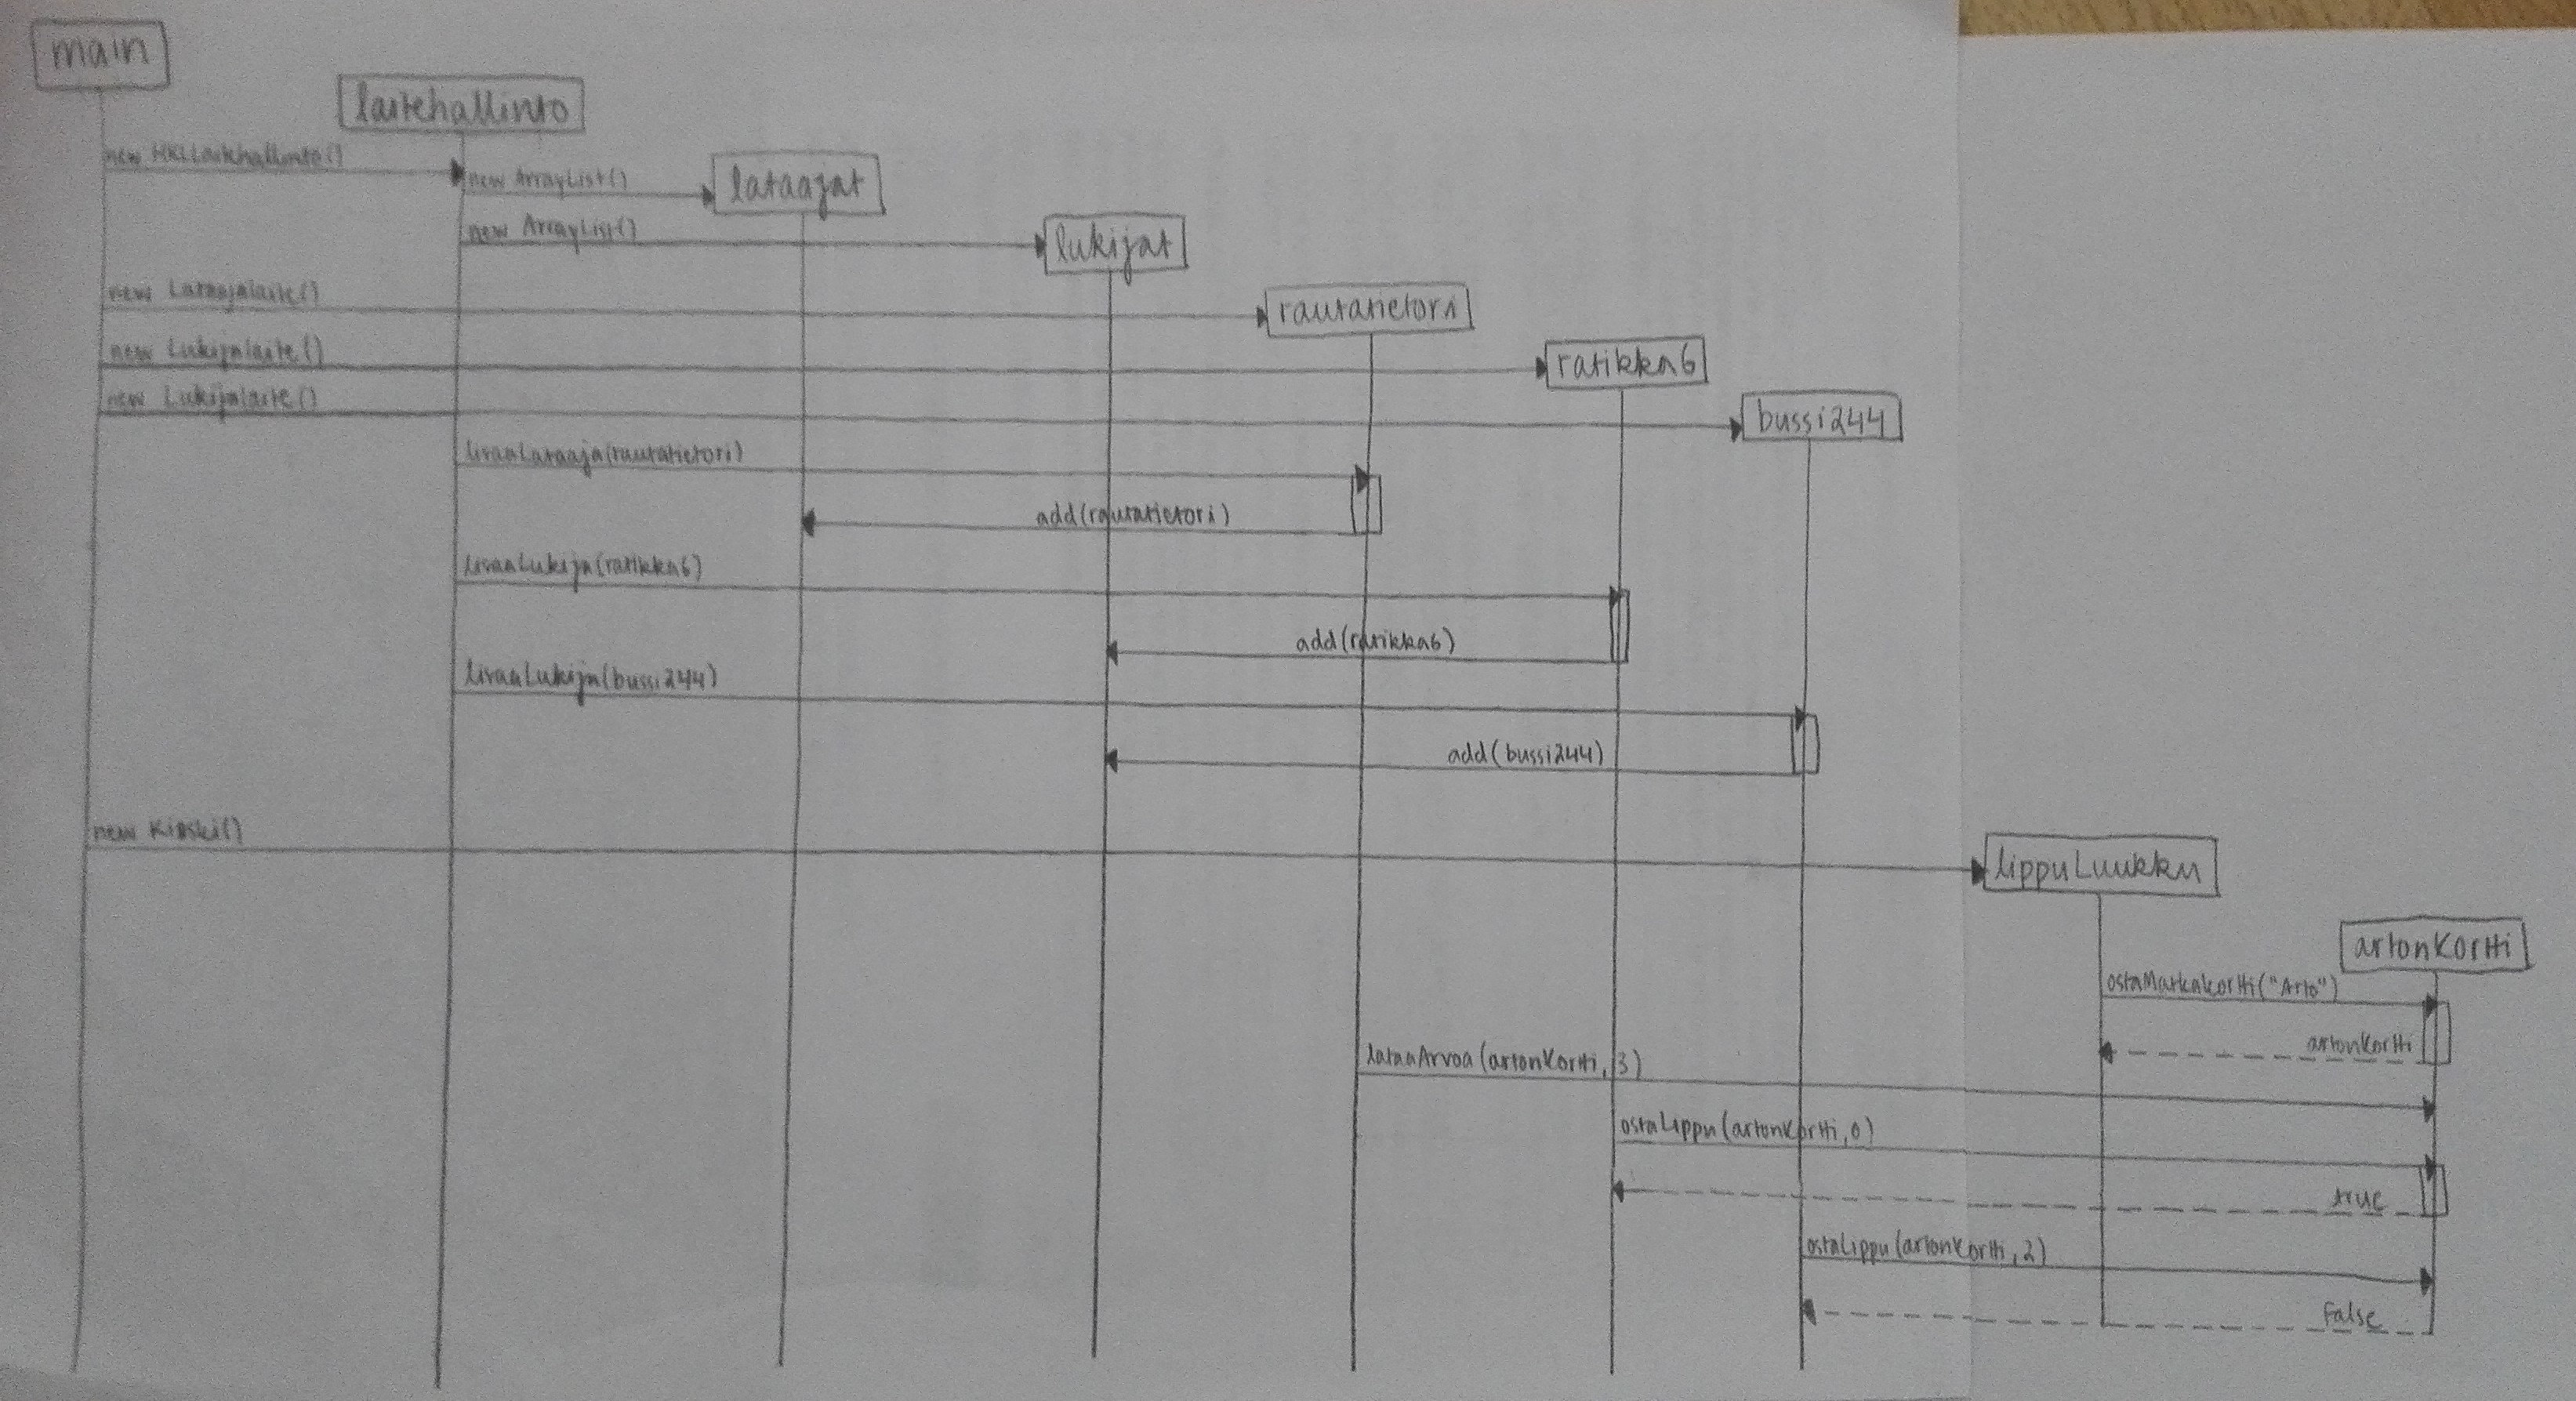 main
laitehallinto
new HKLLaitehallinto()
new ArrayList()
lataajat
new ArrayList()
lukijat
new Lataajalaite()
rautatietori
new Lukijalaite()
ratikka6
new Lukijalaite()
bussi244
lisaaLataaja(rautatietori)
add(rautatietori)
lisaaLukija(ratikka6)
add(ratikka6)
lisaaLukija(bussi244)
add(bussi244)
new Kioski()
lippuLuukku
artonKortti
ostaMatkakortti("Arto")
artonKortti
lataaArvoa(artonKortti, 3)
ostaLippu(artonKortti, 0)
true
ostaLippu(artonKortti, 2)
False